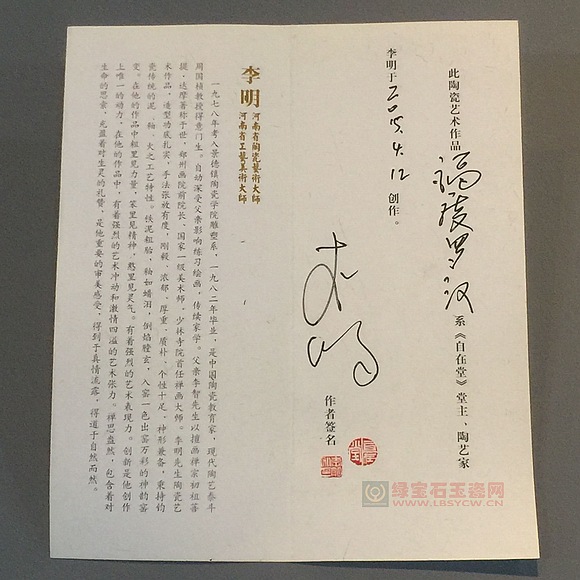 此陶瓷艺术作品 罗汉 系《自在堂》堂主、陶艺家
李明于 4.12 创作。
作者签名
李明
河南省陶瓷藝術大师
河南省工藝美術大师
一九七八年考入景德镇陶瓷学院雕塑系，一九八二年毕业，是中国陶瓷教育家，现代陶艺泰斗
周国桢教授得意门生。自幼深受父亲影响练习绘画，传续家学。父亲李智先生以擅画禅宗初祖菩
提·达摩著称于世，郑州画院前院长、国家一级美术师，少林寺院首任禅画大师。李明先生陶瓷艺
术作品，造型功底扎实，手法张放有度，刚毅、浓郁、厚重、质朴、个性十足，神形兼备，秉持钧
瓷传统的泥、釉、火之工艺特性。铁泥粗胎，釉如蜡泪，倒焰膛窑，入窑一色出窑万彩的神韵窑
变。在他的作品中粗里见力量，笨里见精神，憨里见灵气。有着强烈的艺术表现力。创新是他创作
上唯一的动力，在他的作品中，有着强烈的艺术冲动和激情四溢的艺术张力。禅思盎然，包含着对
生命的思索，充盈着对生灵的礼赞，是他重要的审美感受，得到于真情流露，得道于自然而然。
绿宝石玉瓷网
WWW.LBSYCW.CN